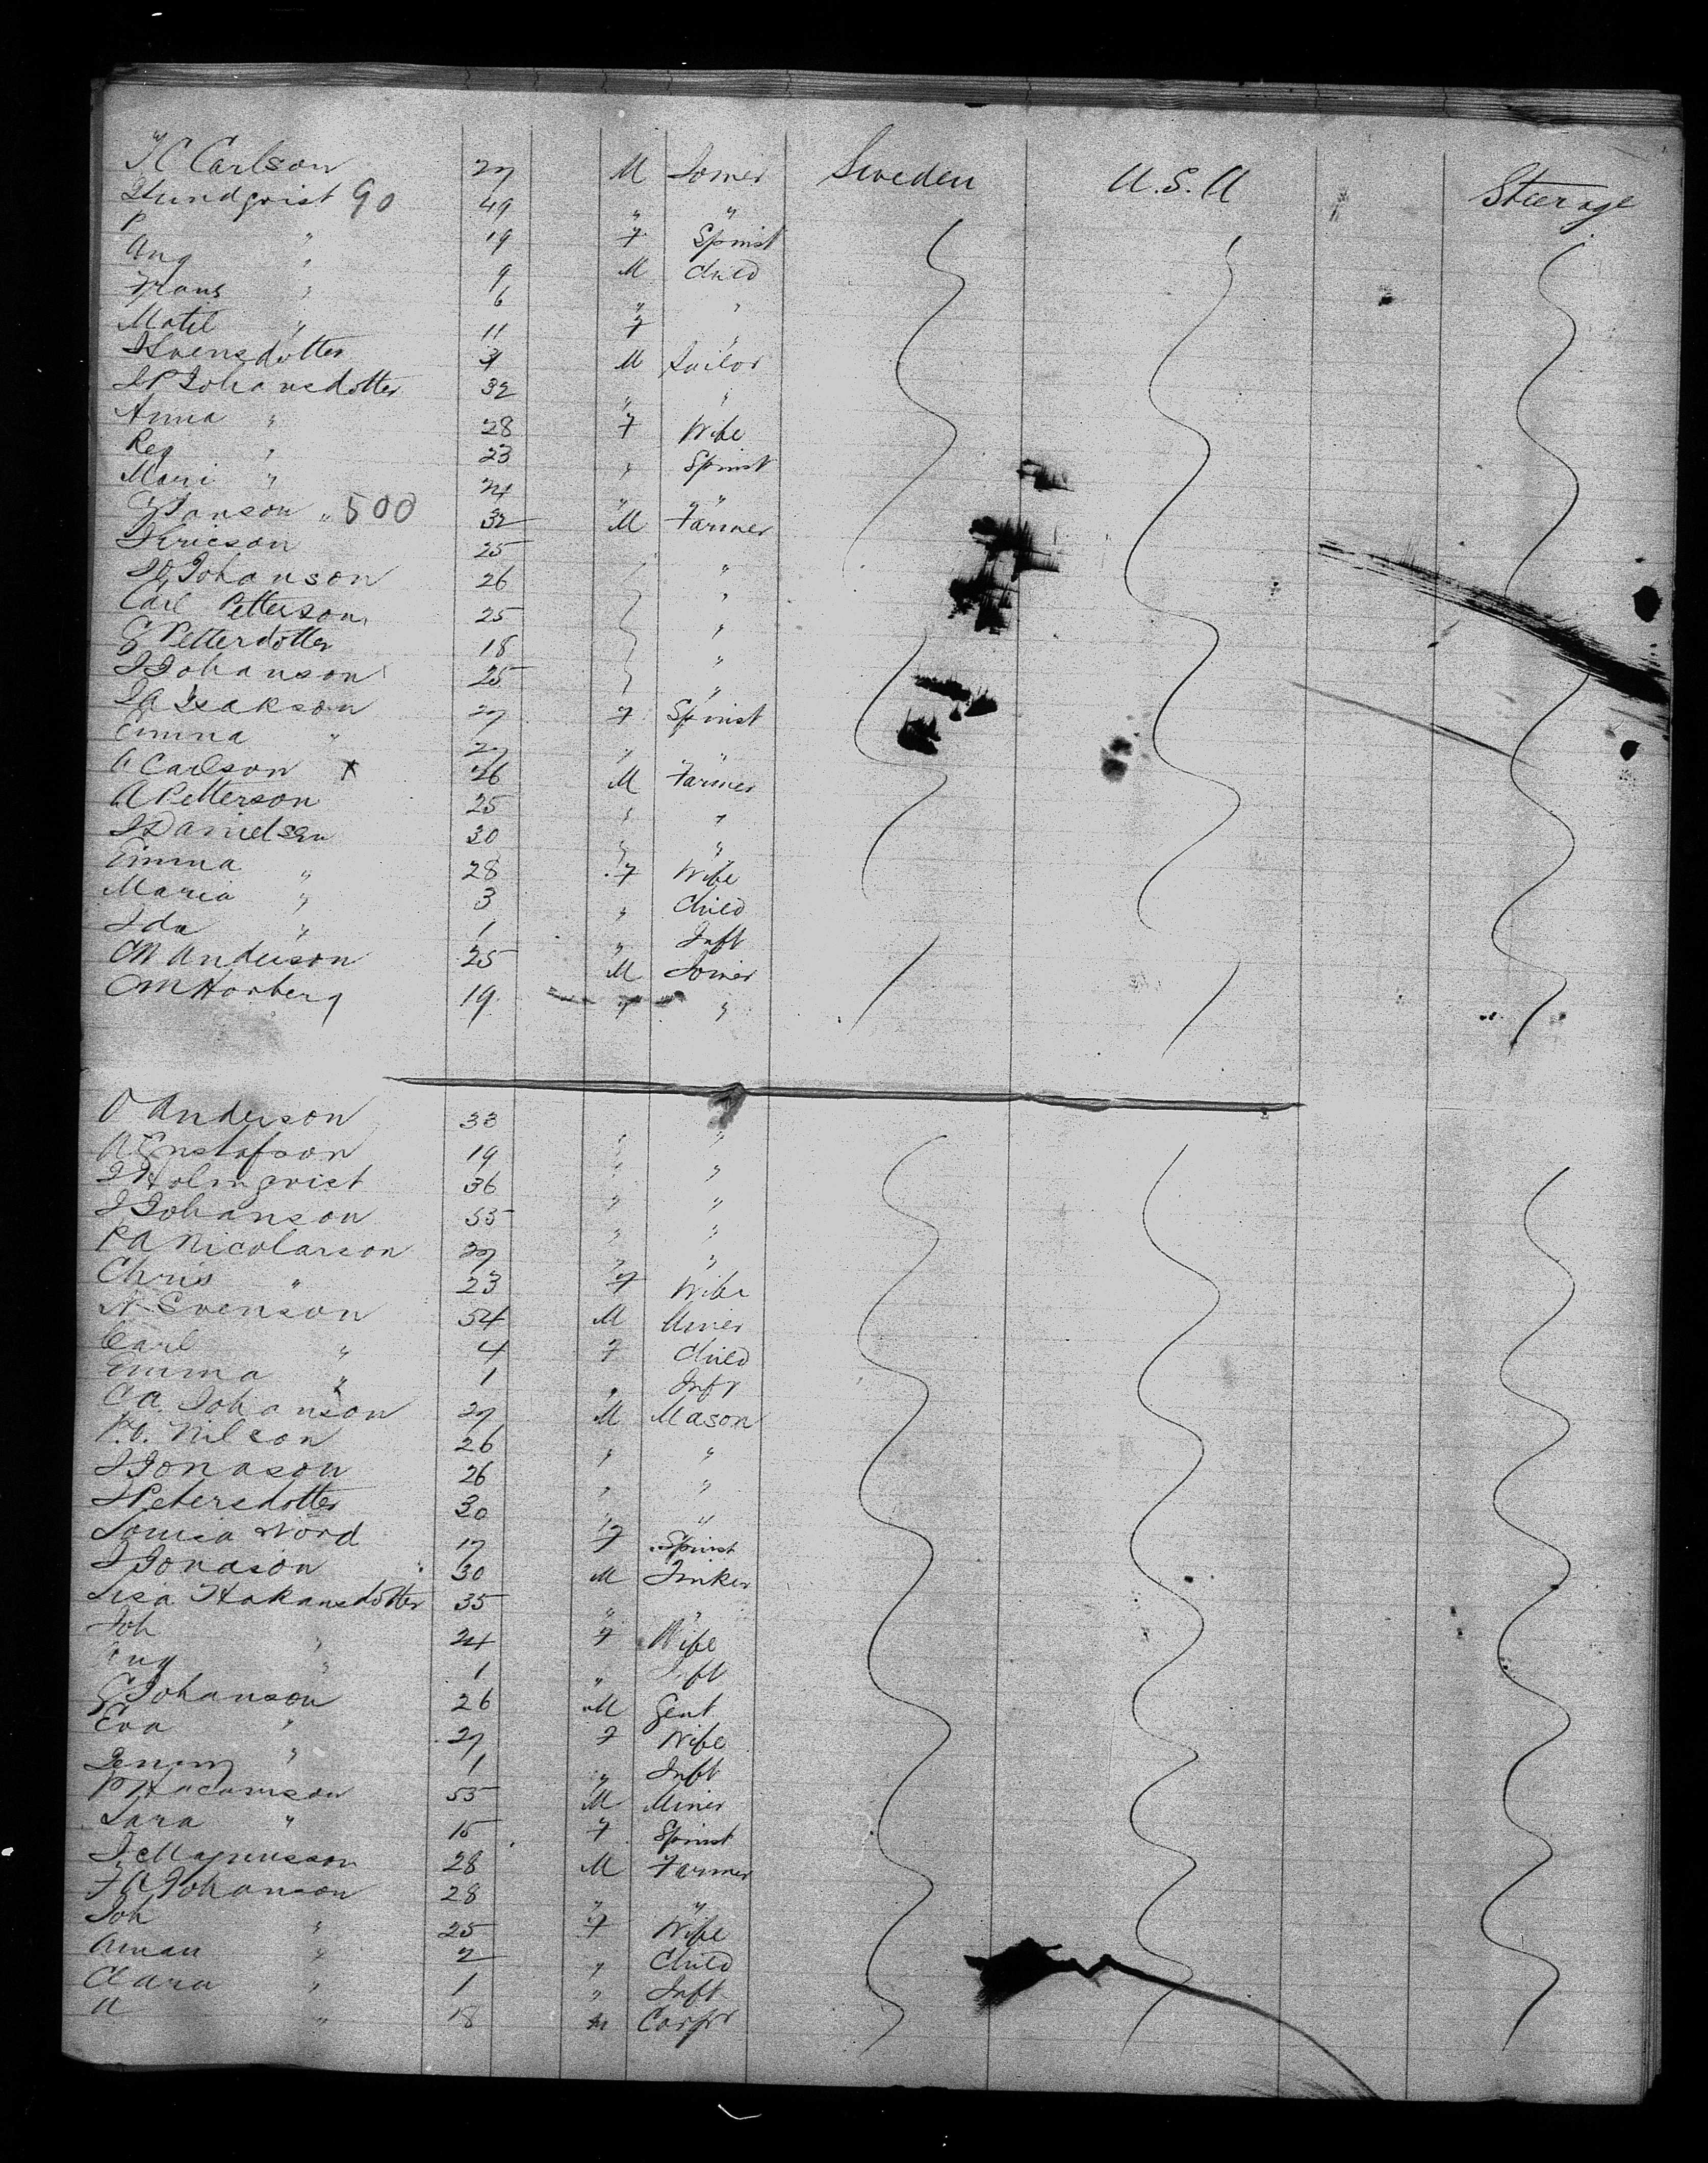 J C Carlson 27 M Joiner Sweden U.S.A Steerage
J Lundqvist 90 49 " "
P " 19 F Spinst
Aug " 9 M Child
Frans " 6 " "
Matil " 11 F "
J Svensdotter 31 M Sailor
S P Johansdotter 32 " "
Anna " 28 F Wife
Reg " 23 " Spinst
Mari " 24 " "
G Janson " 500 32 M Farmer
J Ericson 25 "
J O Johanson 26 "
Carl Petterson 25 "
G Petterdotter 18 "
J Johanson 25 "
J A Isakson 27 F Spinst
Emma " 27 " "
A Carlson x 26 M Farmer
A Petterson 25 " "
J Danielsen 30 " "
Emma " 28 F Wife
Maria " 3 " Child
Ida " 1 " Inft
C N Anderson 25 M Joiner
C M Horberg 19 " "
O Anderson 33 " "
A Gustafson 19 " "
J Holmqvist 36 " "
J Johanson 55 " "
P A Nicolarson 27 " "
Chris " 23 F Wife
N Svenson 54 M Miner
Carl " 4 F Child
Emma " 1 " Inft
C A. Johanson 27 M Mason
P. O. Nilson 26 " "
J Jonason 26 " "
J Petersdotter 30 " "
Louisa Nord 17 F Spinst
J Jonason 30 M Tinker
Lisa Hakansdotter 35 " "
Joh " 24 F Wife
Aug " 1 " Inft
G Johanson 26 M Gent
Eva " 27 F Wife
Jenny " 1 " Inft
P Hacanson 55 M Miner
Sara " 15 F Spinst
J Magnusson 28 M Farmer
F A Johanson 28 " "
Joh " 25 F Wife
Aman " 2 " Child
Clara " 1 " Inft
A " 18 M Carpr